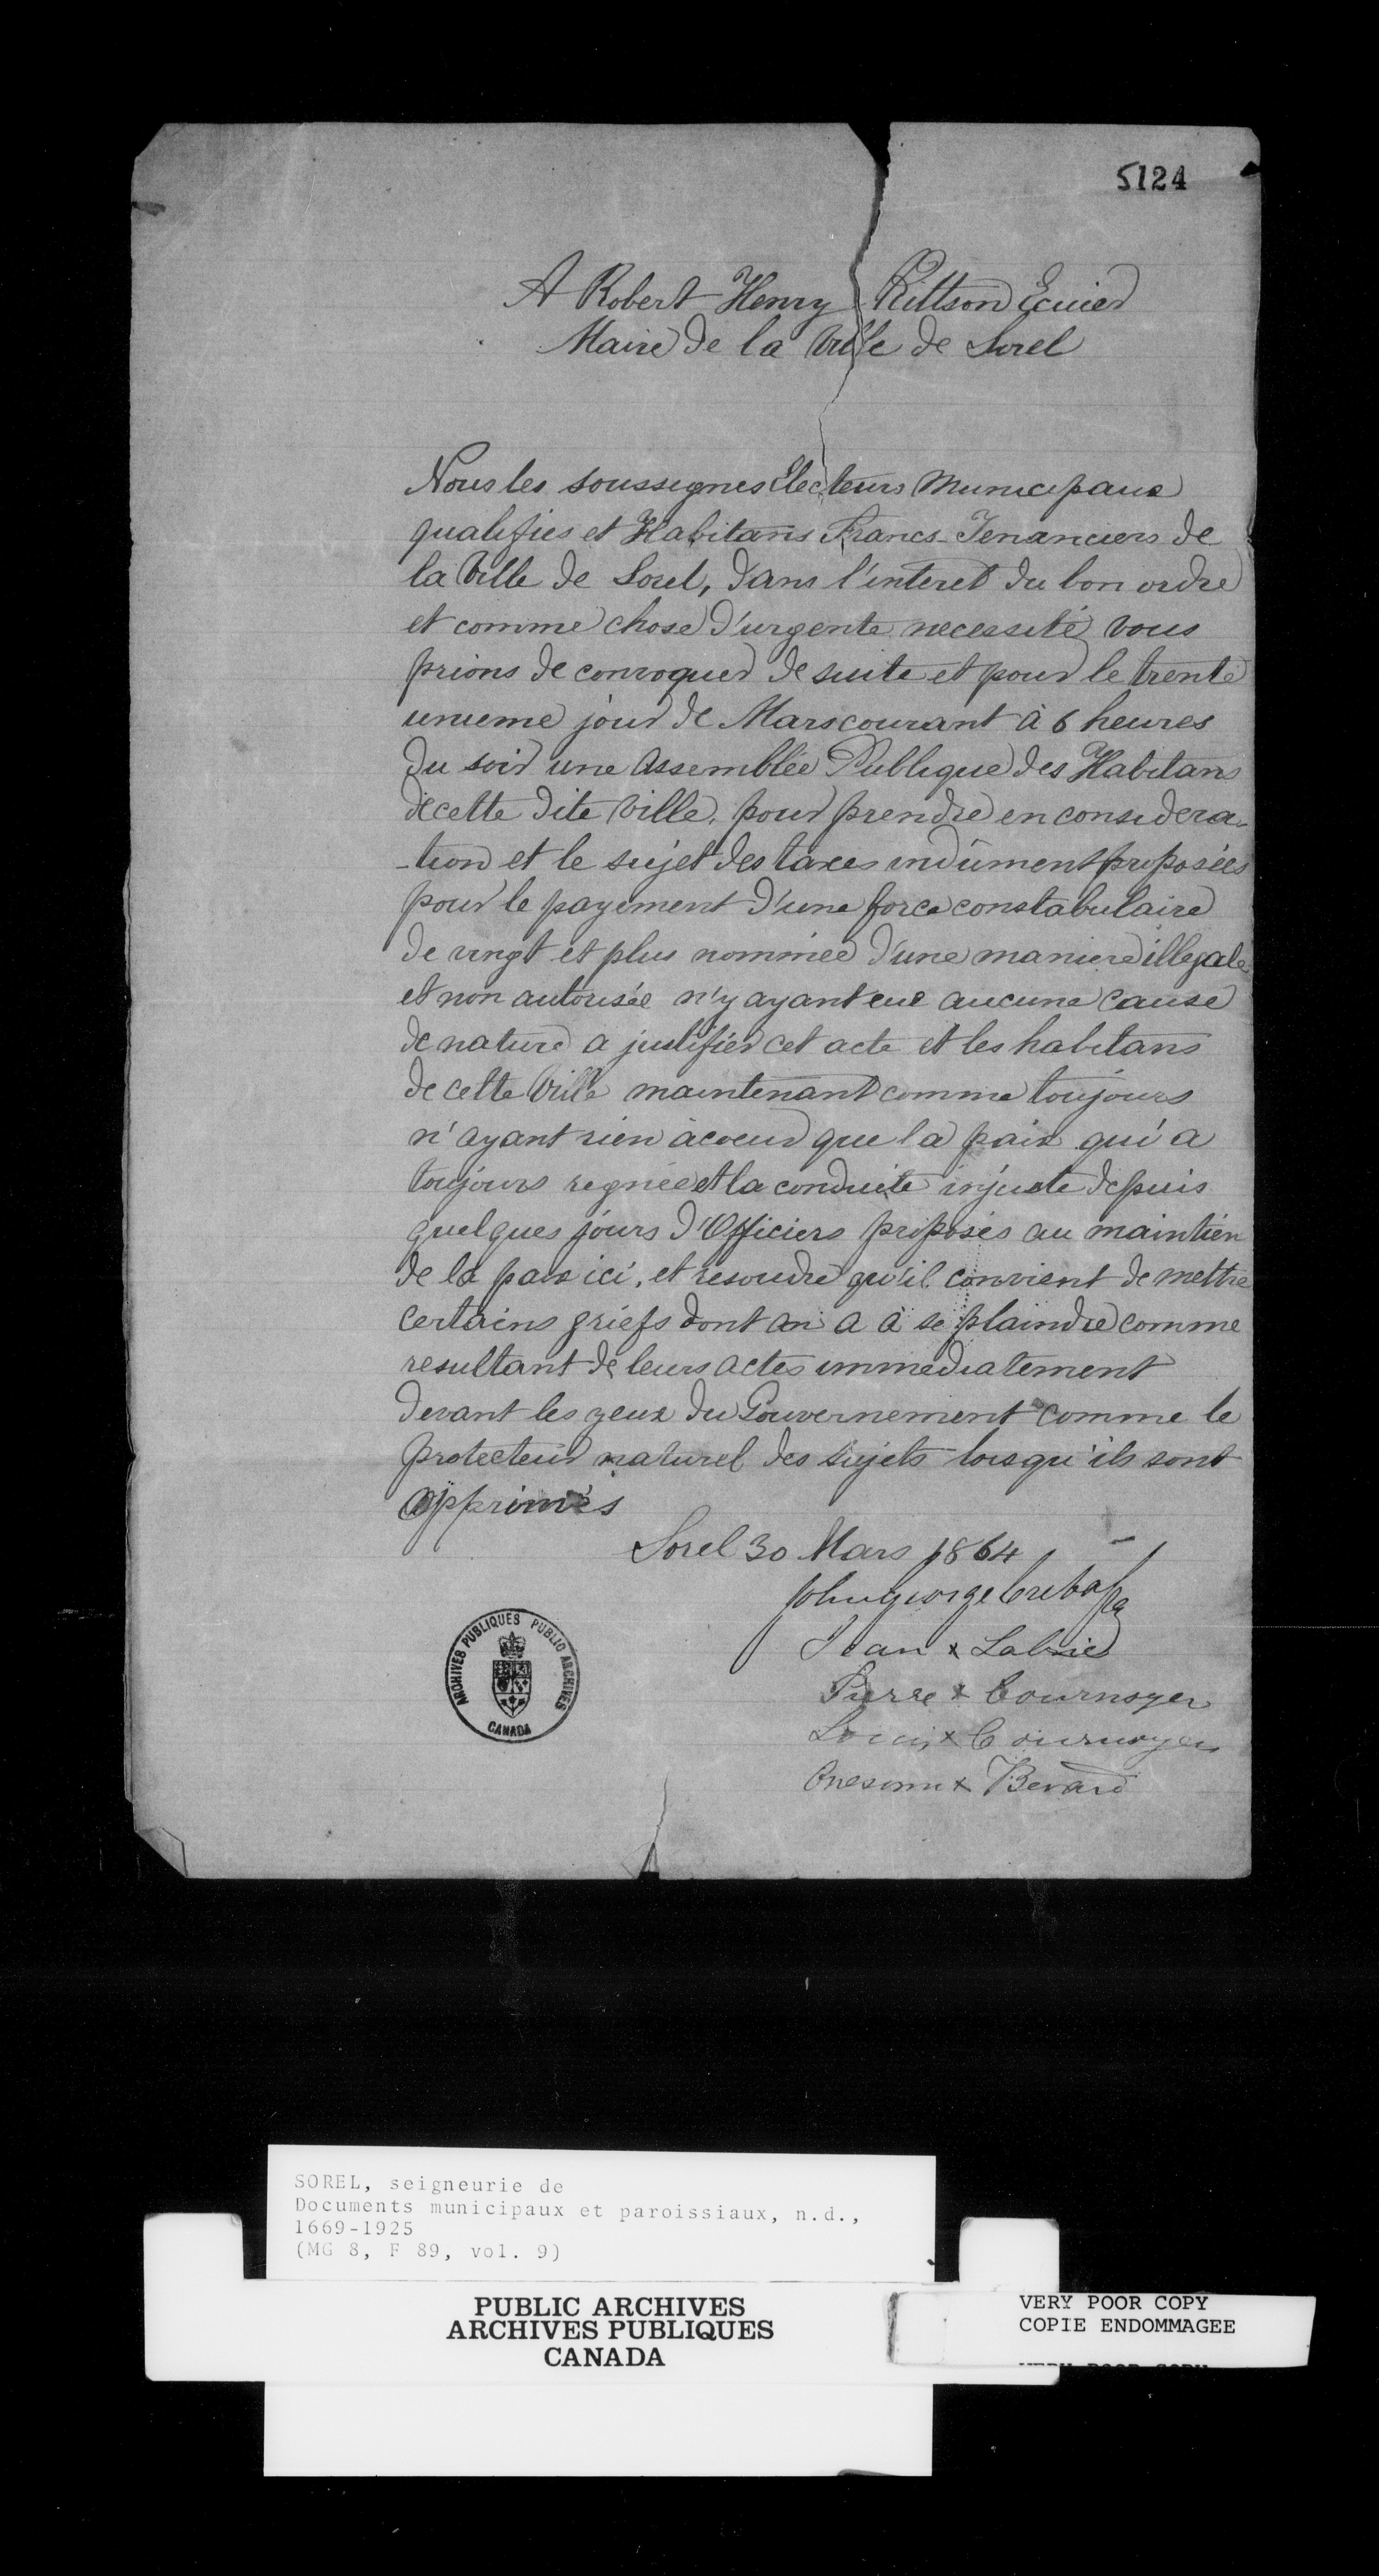 5124
A Robert Henry Kittson Ecuier
Maire de la Ville de Sorel
Nous les soussignes Electeurs Municipaux
qualifies et Habitans Francs-Tenanciers de
la Ville de Sorel, dans l'interet du bon ordre
et comme chose d'urgente necessité vous
prions de convoquer de suite et pour le trente
unieme jour de Mars courant à 6 heures
du soir une assemblée Publique des Habitans
de cette dite ville, pour prendre en considera-
-tion et le sujet des taxes indûment proposées
pour le payement d'une force constabulaire
de vingt et plus nommée d'une maniere illegale
et non autorisée n'y ayant eue aucune cause
de nature a justifier cet acte et les habitans
de cette Ville maintenant comme toujours
n'ayant rien à coeur que la paix qui a
toujours regnée et la conduite injuste depuis
quelques jours d'Officiers préposés au maintien
de la paix ici, et resoudre qu'il convient de mettre
certains griefs dont on a à se plaindre comme
resultant de leurs actes immediatement
devant les yeux du Gouvernement comme le
protecteur naturel des sujets lorsqu'ils sont
opprimés
Sorel 30 Mars 1864
John george Crebassa
Jean x Labrie
Pierre x Cournoyer
Louis x Cournoyer
Onesime x Berard
ARCHIVES PUBLIQUES PUBLIC ARCHIVES
CANADA
SOREL, seigneurie de
Documents municipaux et paroissiaux, n.d.,
1669-1925
(MG 8, F 89, vol. 9)
PUBLIC ARCHIVES
ARCHIVES PUBLIQUES
CANADA
VERY POOR COPY
COPIE ENDOMMAGEE
VERY POOR COPY